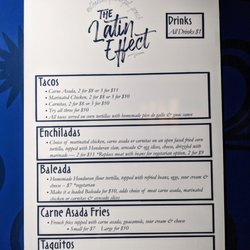 THE
Latin
Effect
Drinks
All Drinks $1
Tacos
• Carne Asada, 2 for $8 or 3 for $11
• Marinated Chicken, 2 for $8 or 3 for $10
• Carnitas, 2 for $8 or 3 for $10
• Try all three for $10
• All tacos served on corn tortillas with homemade pico de gallo &
Enchiladas
• Choice of marinated chicken, carne asada or carnitas on an open faced fried corn
tortilla, topped with Honduran slaw, avocado & egg slices, cheese, drizzled with
marinade — 2 for $11 *Replace meat with beans for vegetarian option, 2 for $9
Baleada
• Homemade Honduran flour tortilla, topped with refried beans, eggs, sour cream &
cheese – $7 *vegetarian
• Make it a loaded Baleada for $10, adds choice of meat carne asada, marinated
chicken or carnitas & avocado slices
Carne Asada Fries
• French fries topped with carne asada, guacamole, sour cream & cheese
Small for $7 Large for $10
Taquitos